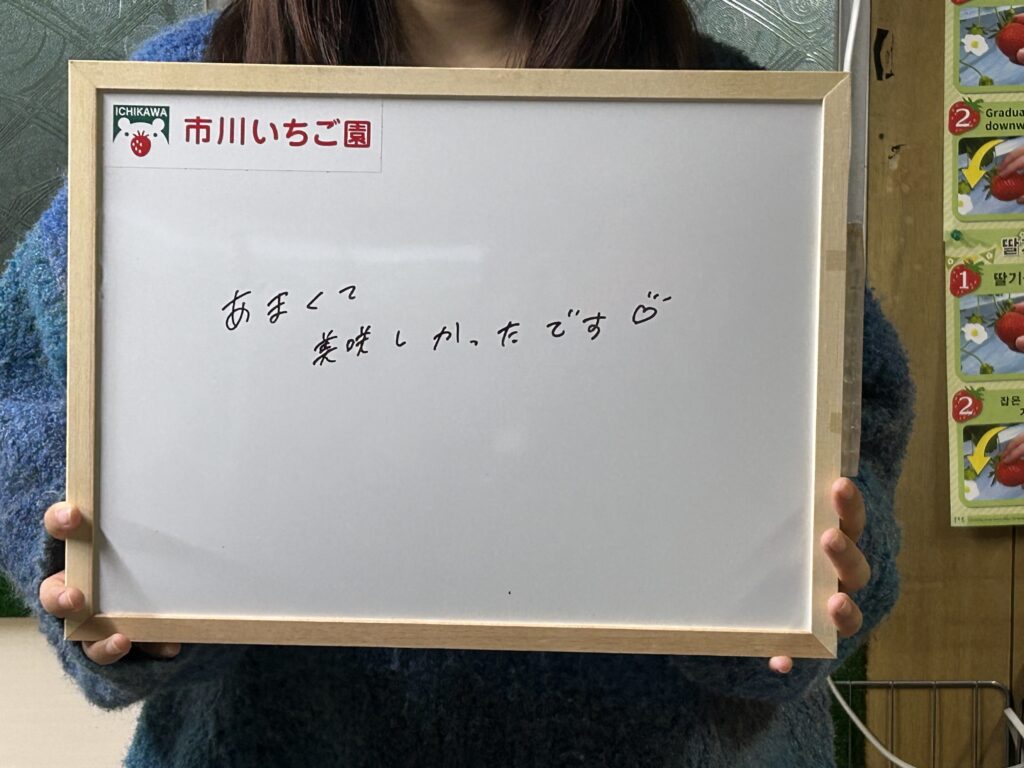 ICHIKAWA
市川いちご園
あまくて
美味しかったです♡
2
Gradua
downw
딸
1
딸기
2
잡은